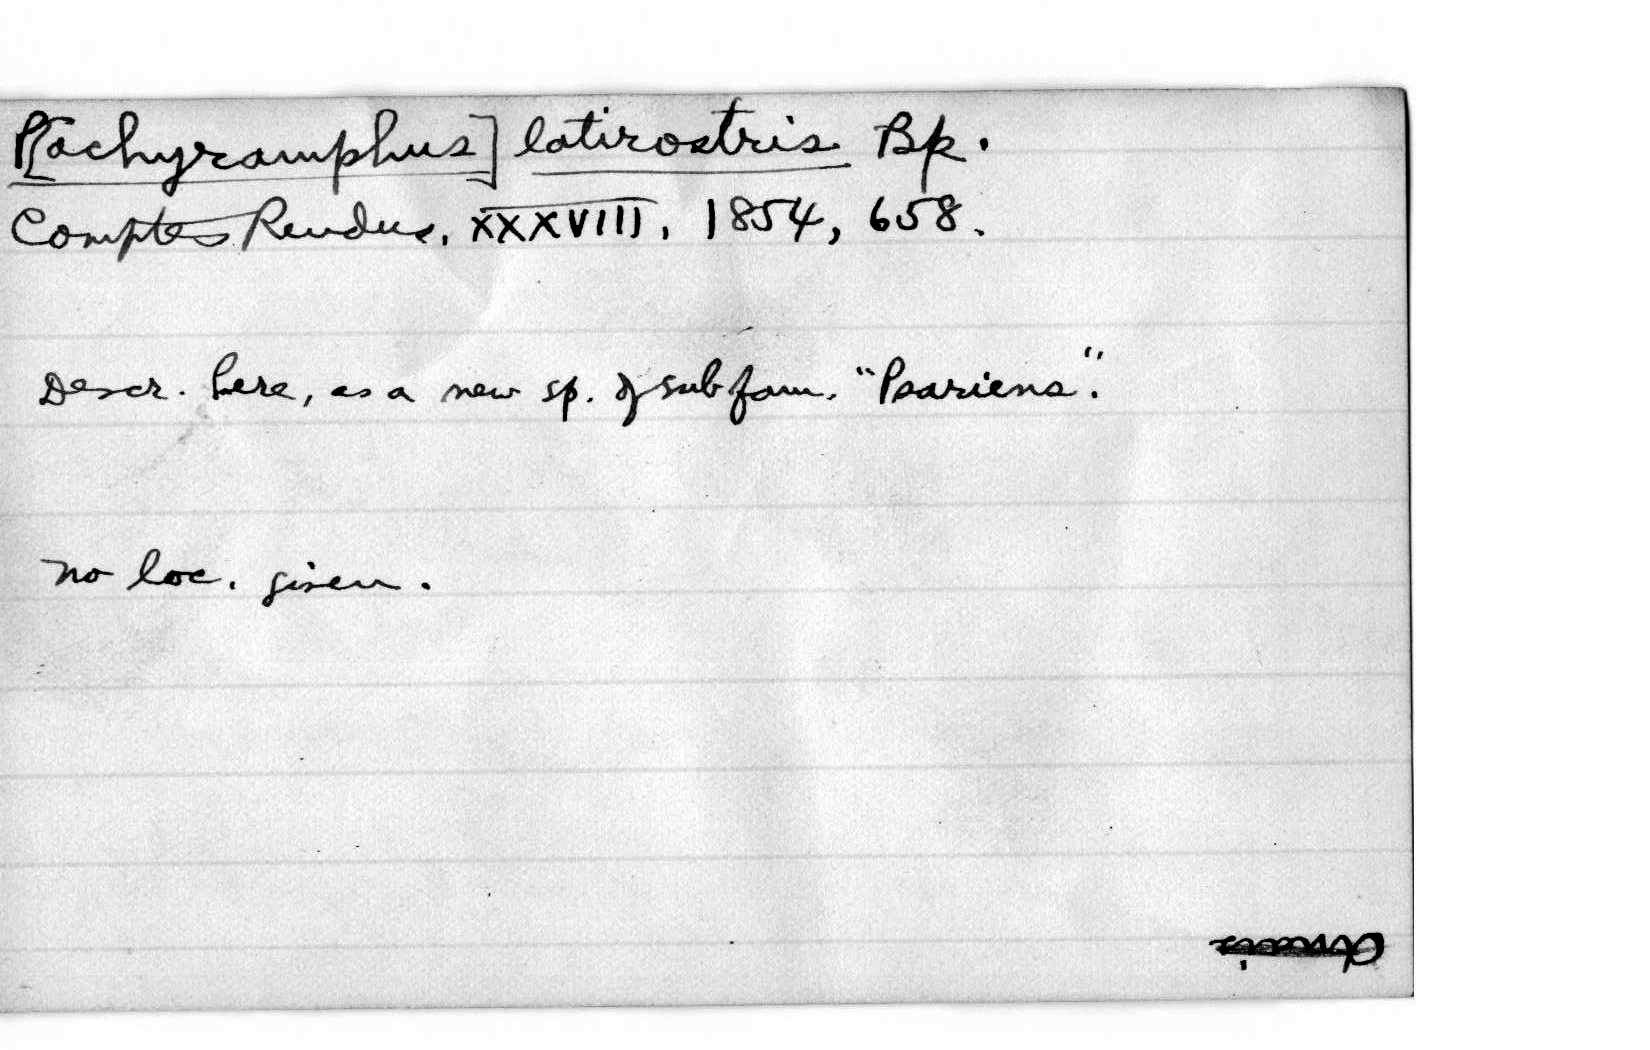 P[achyramphus] latirostris Bp.
Comptes Rendus, XXXVIII, 1854, 658.
Descr. here, as a new sp. of subfam. "Psariens".
No loc. given.